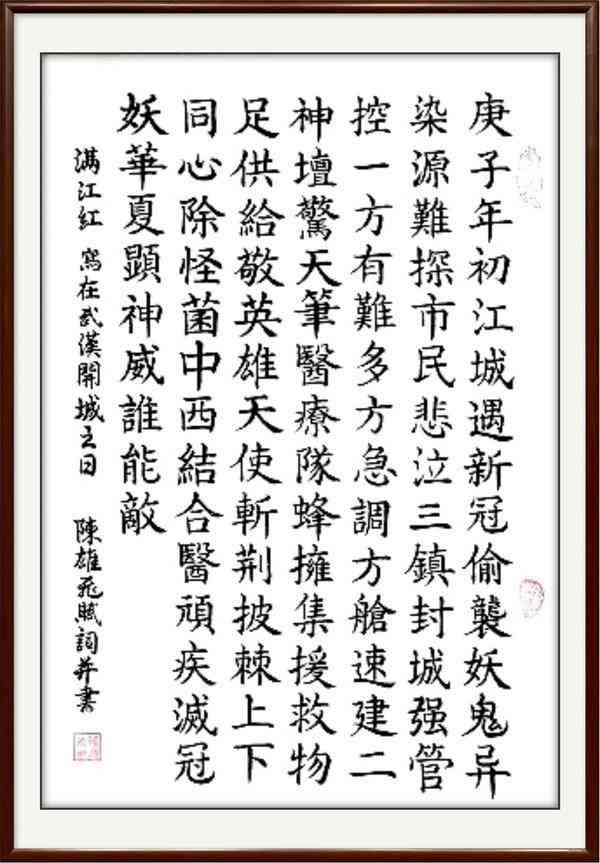 庚子年初江城遇新冠偷襲妖鬼异
染源難探市民悲泣三鎮封城强管
控一方有難多方急調方艙速建二
神壇驚天筆醫療隊蜂擁集援救物
足供給敬英雄天使斬荆披棘上下
同心除怪菌中西結合醫頑疾滅冠
妖華夏顯神威誰能敵
滿江紅 寫在武漢開城之日 陳雄飛賦詞并書